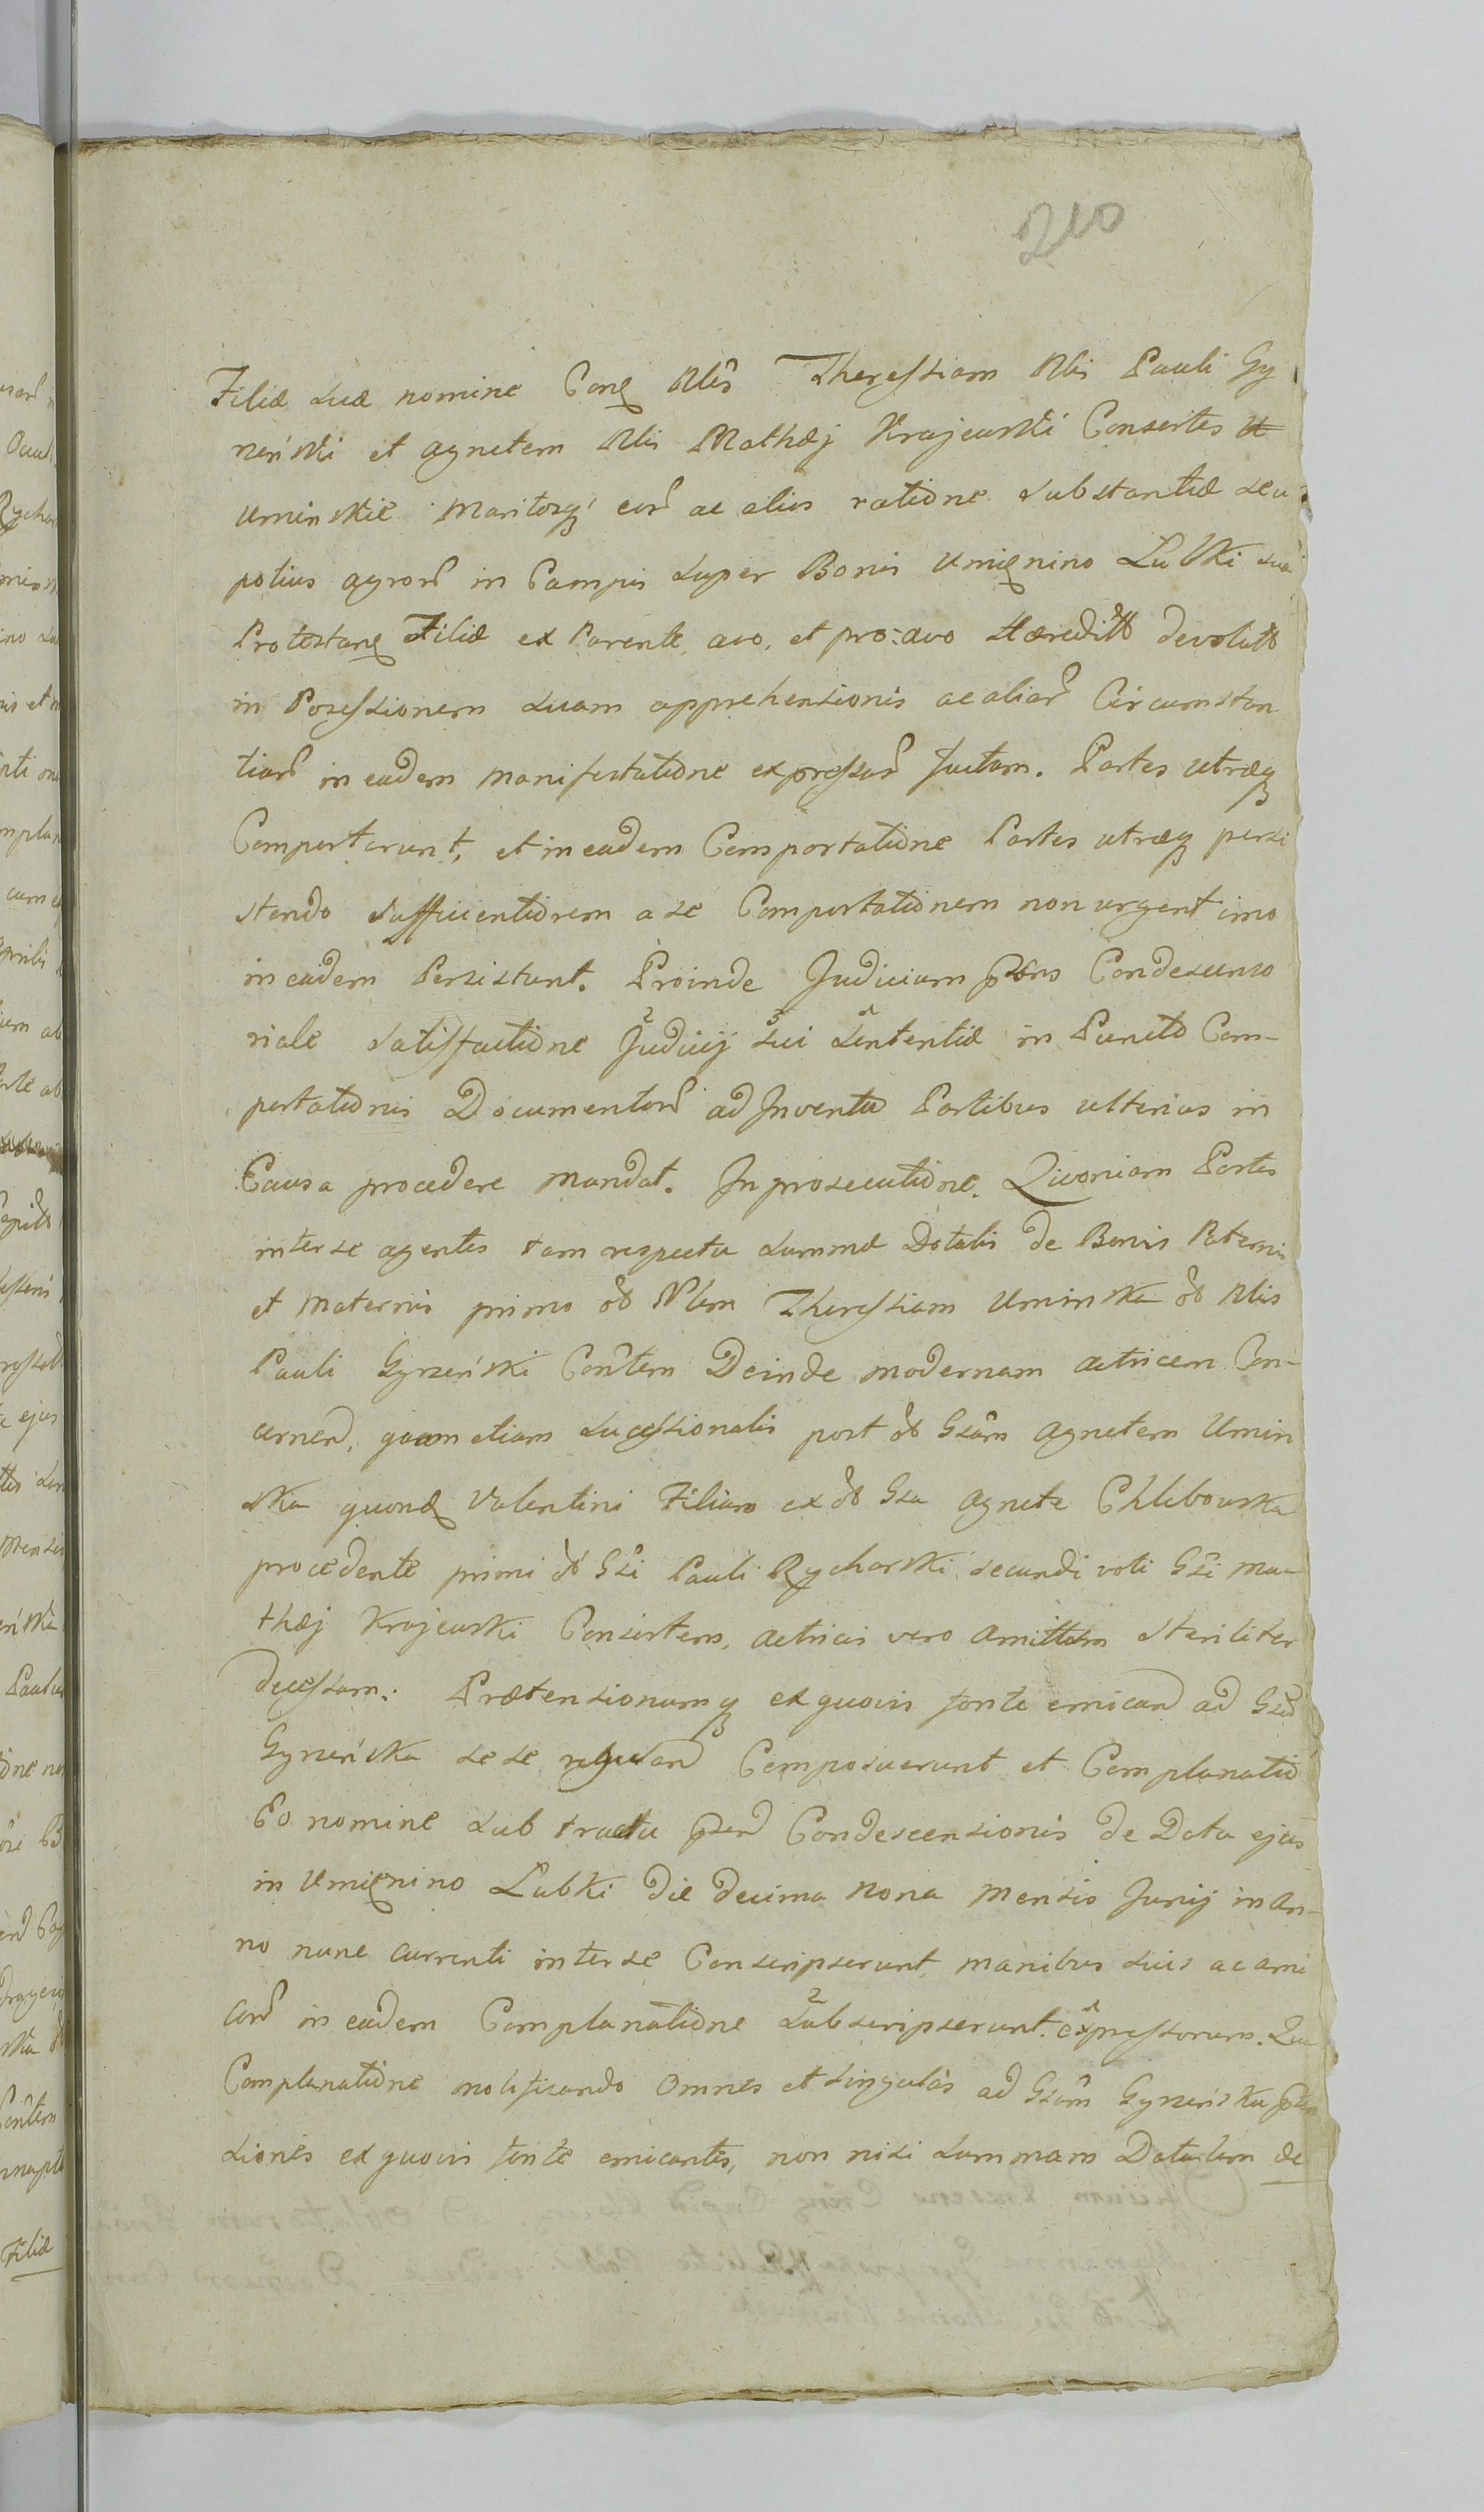 210
Filiæ suæ nomine Conꝗ Nles Theressiam Nlis Pauli Gy
rzeński et Agnetem Nlis Mathæj Krajewski Consortes U
Uminskie Maritosq eoru ac alios ratione substantiæ seu
potius agroru in Campis super Bonis Umięnino Łubki suæ
Protestanꝗ Filiæ ex Parente, avo, et pro:avo Hæreditt devolutt
in Possessionem suam apprehensionis ac aliaru Circumstan
tiaru in eadem Manifestatione expressaru factam. Partes utræq
Comportarunt, et in eadem Comportatione Partes utræq persi
stendo sufficientiorem a se Comportationem non urgent imo
in eadem Persistunt. Proinde Judicium pñs Condescenso
riale satisfactione Judicij sui sententiæ in Puncto Com-
portationis Documentoru ad Inventa Partibus ulterius in
Causa procedere mandat. In prosecutione. Quoniam Partes
inter se agentes tam respectu summæ Dotalis de Bonis Paternis
et Maternis primo ob Nlem Theressiam Uminska ob Nlis
Pauli Gyrzeński Contem Deinde modernam actricem Con-
cernen, quam etiam successionalis post ob Gsam Agnetem Umin
ska quonꝗ Valentini Filiam ex ob Gsa Agnete Chlebowska
procedente primi ob Gsi Pauli Rycharski secundi voti Gsi Ma-
thæj Krajewski Consortem, actricis vero Amittam steriliter
decessam: Prætensionumq ex quovis fonte emican ad Gsa
Gyrzeńska sese Composuerunt et Complanatio
Eo nomine sub tractu psen Condescensionis de Data ejus
in Umięnino Łubki die decima nona Mensis Junij in An-
no nunc currenti inter se Conscripserunt, manibus suis ac ami
coru in eadem Complanatione subscripserunt. expressorum. Qua
Complanatione molificando omnes et singulas ad Gsam Gyrzeńska pten
siones ex quovis fonte emicantes, non nisi summam Dotalem de